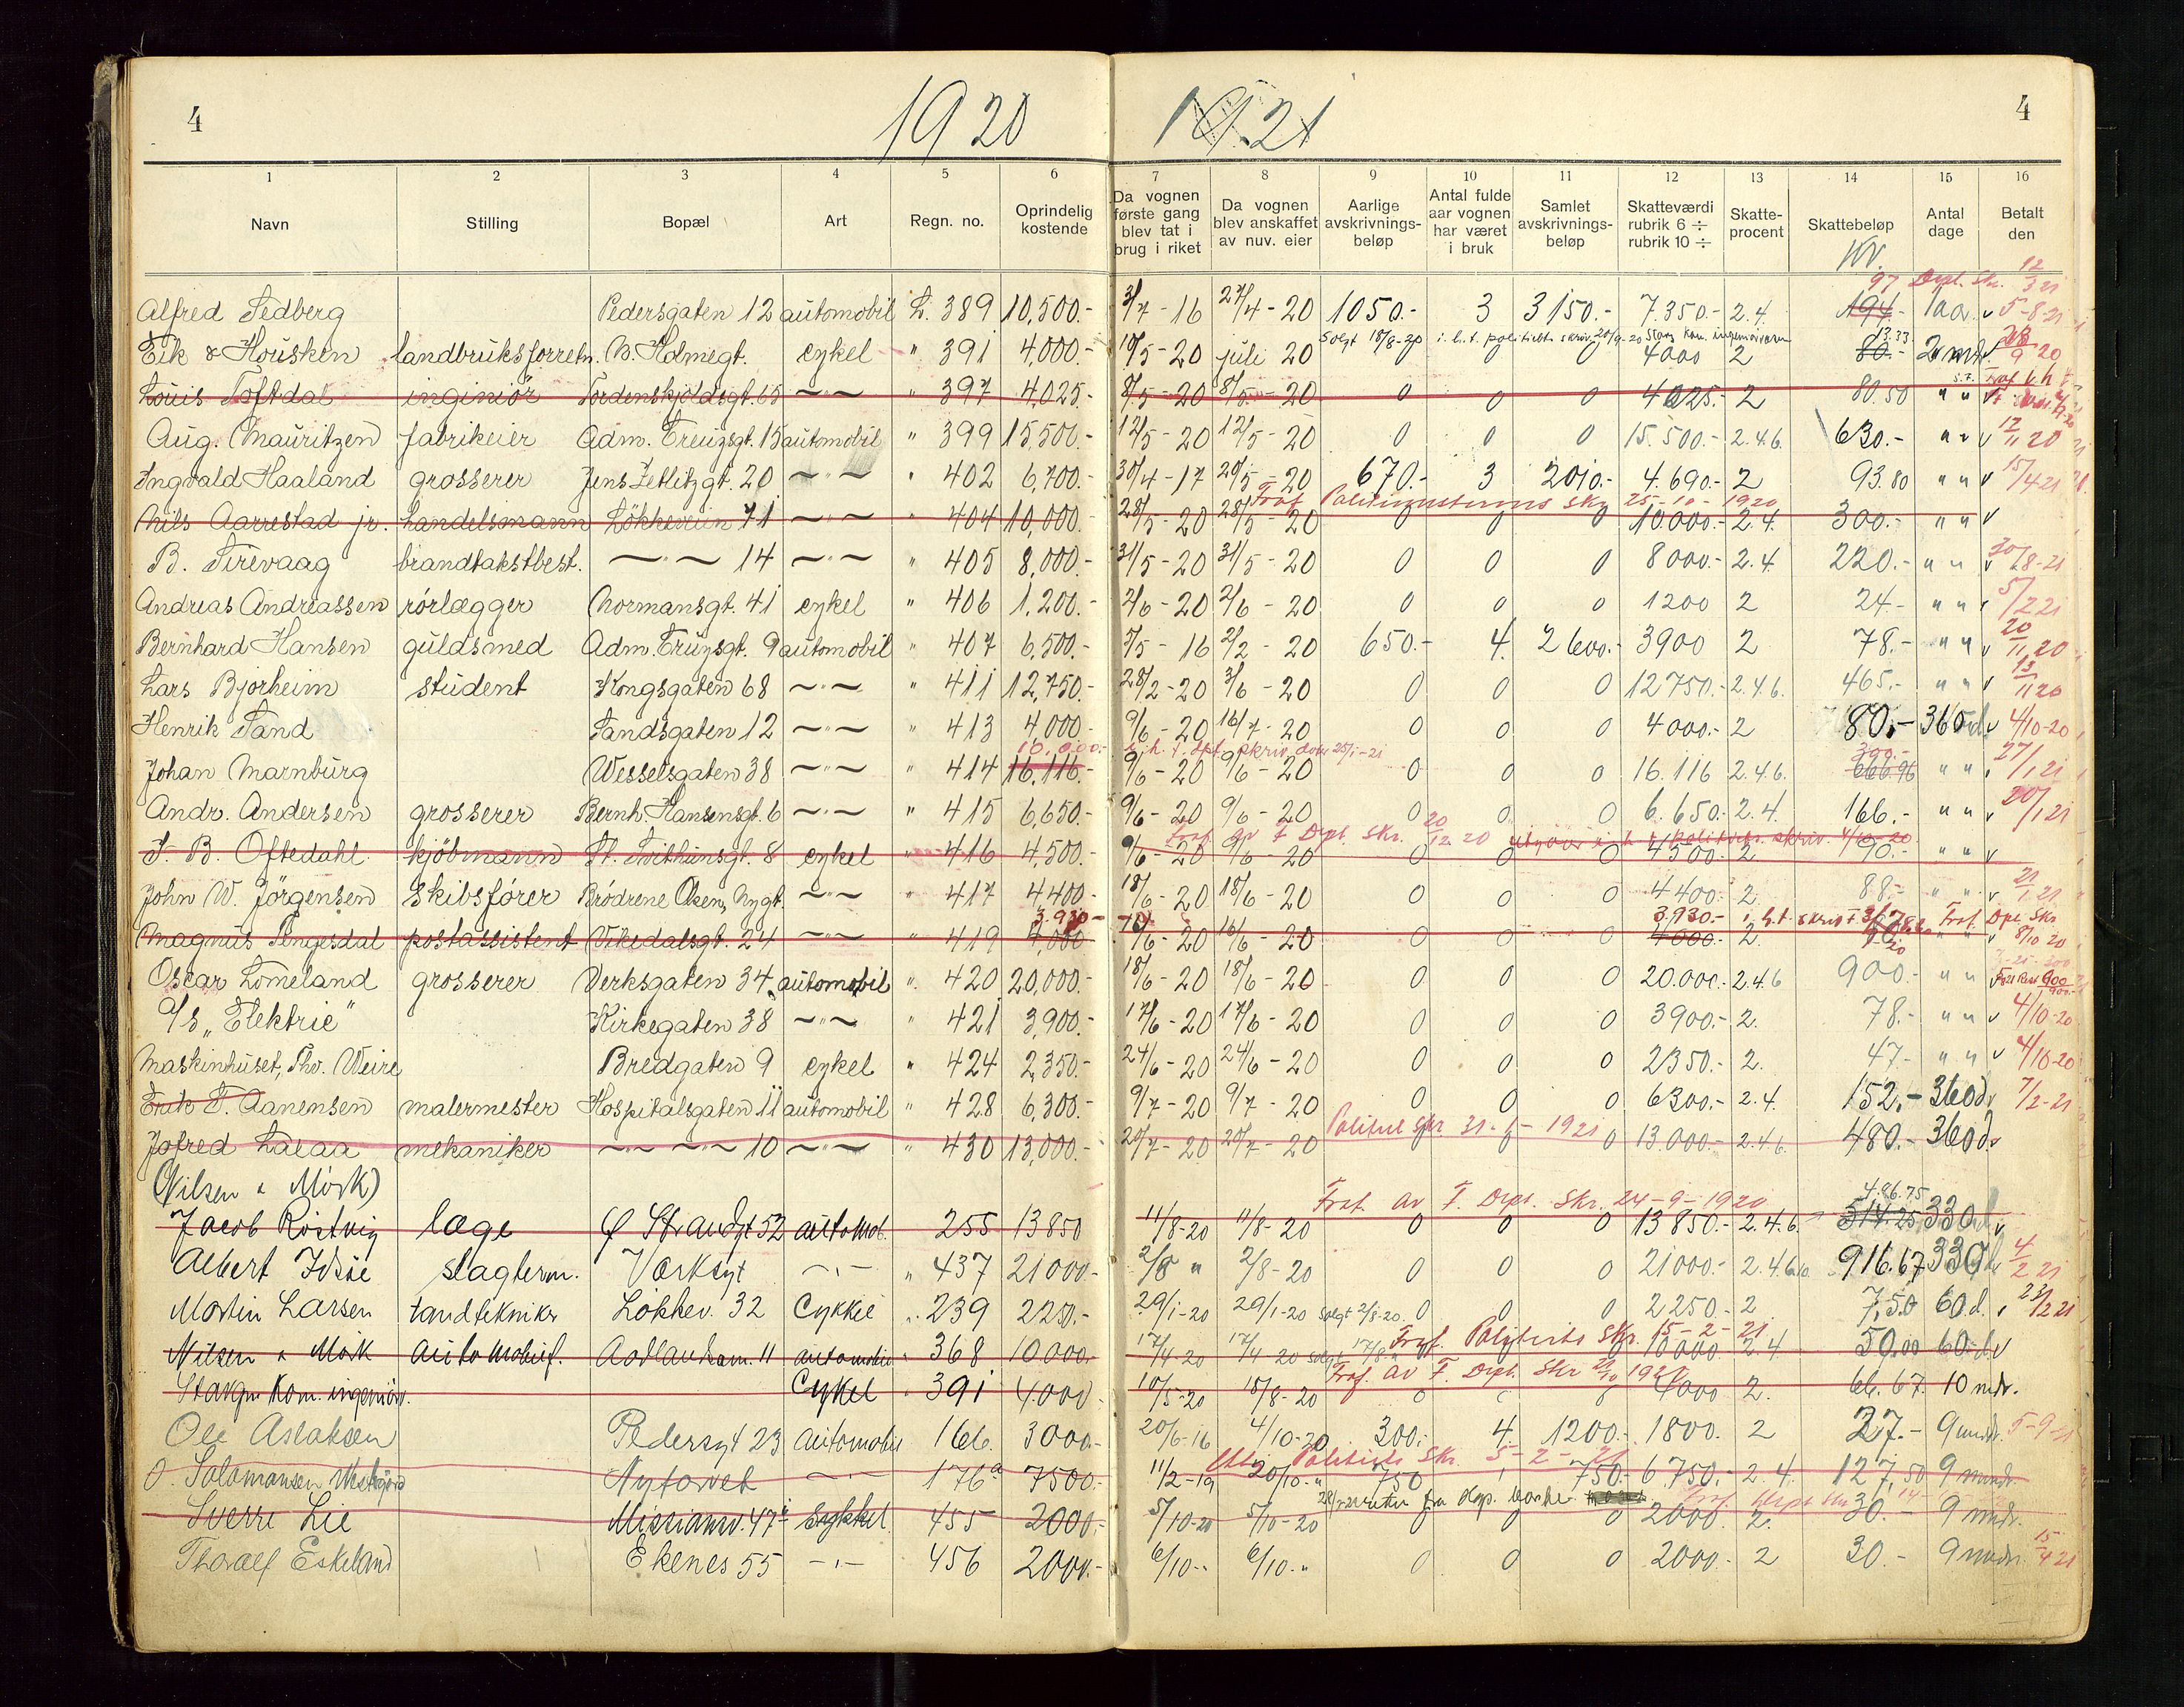 4 1920 1921 4
1 2 3 4 5 6 7 8 9 10 11 12 13 14 15 16
Navn Stilling Bopæl Art Regn. no. Oprindelig kostende Da vognen første gang blev tat i brug i riket Da vognen blev anskaffet av nuv. eier Aarlige avskrivnings-beløp Antal fulde aar vognen har været i bruk Samlet avskrivnings-beløp Skatteværdi rubrik 6 ÷ rubrik 10 ÷ Skatte-procent Skattebeløp Antal dage Betalt den
Kr.
97 Dept. Skr. 12/3 21
Alfred Sedberg Pedersgaten 12 automobil L. 389 10,500.- 3/7 - 16 27/4 - 20 1050.- 3 3150.- 7.350.- 2.4 194.- 1 aar. v 5-8-21
Solgt 18/8-20 i.h.t. politiets skriv. 20/9-20 Stav. kom. ingeniörvæsen 13.33
Eik & Housken landbruksforretn. N. Holmegt. cykel " 391 4,000.- 10/5 - 20 juli 20 0 0 4000 2 80.- 2 mdr. 9 20
Louis Toftdal inginiör Tordenskjoldsgt. 65 —"— " 397 4,025.- 8/5 - 20 8/5 - 20 0 0 0 4025.- 2 80.50 " " v
Aug. Mauritzen fabrikeier Adm. Creuzsgt. 15 automobil " 399 15,500.- 12/5 - 20 12/5 - 20 0 0 0 15.500.- 2.4.6. 630.- " " v 17/11 20
Ingvald Haaland grosserer Jens Zetlitzgt. 20 —"— " 402 6,700.- 30/4 - 17 20/5 - 20 670.- 3 2010.- 4.690.- 2 93.80 " " v 15/4 21
Fraf. Politimesterens Skr. 25-10-1920
Nils Aarrestad jr. handelsmann Lökkeveien 71 —"— " 404 10,000.- 28/5 - 20 28/5 - 20 0 0 0 10.000.- 2.4. 300.- " " v
B. Tirevaag brandtakstbest. —"— 14 —"— " 405 8,000.- 31/5 - 20 31/5 - 20 0 0 0 8000.- 2.4. 220.- " " v 30/8-21
Andreas Andreassen rörlægger Normansgt. 41 cykel " 406 1,200.- 2/6 - 20 2/6 - 20 0 0 0 1200 2 24.- " " v 5/2 21
Bernhard Hansen guldsmed Adm. Cruysgt. 9 automobil " 407 6,500.- 5/5 - 16 2/2 - 20 650.- 4. 2600.- 3900 2 78.- " " v 20/11 20
Lars Bjorheim student Kongsgaten 68 —"— " 411 12,750.- 28/2 - 20 3/6 - 20 0 0 0 12750.- 2.4.6. 465.- " " v 13/11 20
Henrik Sand Sandsgaten 12 —"— " 413 4,000.- 9/6 - 20 16/7 - 20 0 0 0 4000.- 2 80.- 360 d. v 4/10-20
10.000.- i.h.t. dpt. skriv. dat. 25/1-21 300.-
Johan Marnburg Wesselsgaten 38 —"— " 414 16,116.- 9/6 - 20 9/6 - 20 0 0 0 16.116 2.4.6. 666.96 " " v 27/1 21
Andr. Andersen grosserer Bernh. Hansensgt. 6 —"— " 415 6,650.- 9/6 - 20 9/6 - 20 0 0 0 6.650.- 2.4. 166.- " " v 20/1 21
Fraf. av F Dept. Skr. 20/12 20 politiets skriv. 4/10-20
T. B. Oftedahl kjöbmann St. Svithunsgt. 8 cykel " 416 4,500.- 9/6 - 20 9/6 - 20 0 0 0 4500.- 2 90.- " " v
John W. Jörgensen skibsförer Brödrene Olsen, Nygt. —"— " 417 4,400.- 18/6 - 20 18/6 - 20 0 0 0 4400.- 2. 88.- " " v 21/1 21
3.930.- 3.930.- i.h.t. skriv. Fraf. Dpt. Skr.
Magnus Tengesdal postassistent Vikedalsgt. 24 —"— " 419 4,000 16/6 - 20 16/6 - 20 0 0 0 4000.- 2. " " v 8/10 20
Oscar Lomeland grosserer Verksgaten 34 automobil " 420 20,000.- 18/6 - 20 18/6 - 20 0 0 0 20.000.- 2.4.6 900.- " "
A/S „Elektric" Kirkegaten 38 —"— " 421 3,900.- 17/6 - 20 17/6 - 20 0 0 0 3900.- 2. 78.- " " v 4/10-20
Maskinhuset, Thv. Weire Bredgaten 9 cykel " 424 2,350.- 24/6 - 20 24/6 - 20 0 0 0 2350.- 2. 47.- " " v 4/10-20
Erik T. Aanensen malermester Hospitalsgaten 11 automobil " 428 6,300.- 9/7 - 20 9/7 - 20 0 0 0 6300.- 2.4. 152.- 360 d. 7/2-21
Politiets Skr. 31-1-1921
Jofred Lalaa mekaniker —"— —"— 10 —"— " 430 13,000.- 20/7 - 20 20/7 - 20 0 0 13.000.- 2.4.6. 480.- 360 d. v
(Nilsen & Mörk)
Fraf. av F. Dept. Skr. 24-9-1920 496.75
Jacob Röstvig læge Ö Strandgt 52 automob. 255 13850 11/8-20 11/8-20 0 0 0 13850.- 2.4.6. 514.25 330 d v
Albert Idsöe slagterm. Verksgt —"— " 437 21000.- 2/8 " 2/8-20 0 0 0 21000.- 2.4.6. 916.67 330 d v 4/2 21
Martin Larsen tandtekniker Lökkev. 32 Cykkel " 239 2250.- 29/1-20 29/1-20 solgt 2/8-20 0 0 0 2250.- 2 7,50 60 d. v 23/12 21
Fraf. Politiets Skr. 15-2-21
Nilsen & Mörk Automobilf. automobil " 368 10000.- 17/4-20 17/4-20 solgt 17/8 10000 2 4 50,00 60 d v
Fraf. av F. Dept. Skr 1920
Stavgr Kom. ingeniörv. Cykel " 391 4000 10/5-20 18/8-20 0 0 4000 2. 66.67. 10 mdr.
Ole Aslaksen Pedersgt 23 automobil 166. 3000.- 20/6-16 4/10-20 300.- 4 1200.- 1800. 2 27.- 9 mndr. 5-9-21
Politiets Skr. 5-2-21
O. Salomonsen, Nytorvet —"— 176a 7500.- 11/2-19 20/10-" 750 1 750.- 6750.- 2.4. 127,50 9 mndr.
Sverre Lie Missionsv. 47 Cykkel 455 2000.- 5/10-20 5/10-20 0 0 0 2000. 2. 30.- 9 mndr.
Thoralf Eskeland Ekenes 55 —"— 456 2000.- 6/10-" 6/10-" 0 0 0 2000.- 2 30.- 9 mndr. 15/4 21